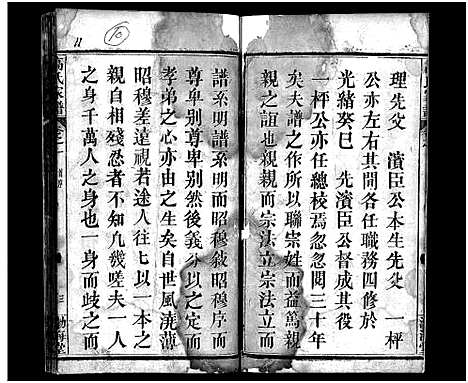 理先父 濱臣公本生先父 一枰
公亦左右其間各任職務四修於
光緒癸巳 先濱臣公督成其役
一枰公亦任總校焉忽忽閱三十年
矣夫譜之作所以聯崇姓而益篤親
親之誼也親親而宗法立宗法立而
譜系明譜系明而昭穆敘昭穆序而
尊卑别尊卑别然後義分以之定而
孝弟之心亦由之生矣自世風澆薄
昭穆差遠視若途人往七以一本之
親自相殘忍者不知凡幾嗟夫一人
之身千萬人之身也一身而歧之而
高氏家譜
卷之一
三
渤海堂
11
10